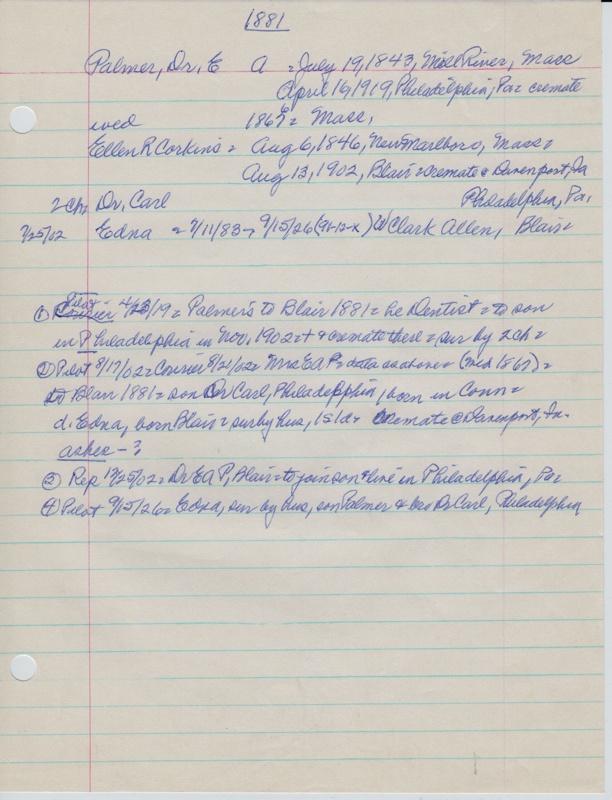 1881
Palmer, Dr. E A = July 19, 1843, Mill River, Mass
April 16, 1919, Philadelphia, Pa = cremate
wed 1867 = Mass,
Ellen R Corkins = Aug 6, 1846, New Marlboro, Mass =
Aug 13, 1902, Blair = cremate @ Davenport, Ia
2 ch = Dr. Carl Philadelphia, Pa,
7/25/02 Edna = 7/11/83 → 9/15/26 (96-12-x) (W) Clark Allen, Blair =
① Pilot 4/23/19 = Palmer's to Blair 1881 = he Dentist = to son
in Philadelphia in Nov. 1902 = + & cremate there = sur by 2 ch =
② Pilot 8/17/02 = Courier 8/21/02 = Mrs EA P = data as above = (wed 1867) =
to Blair 1881 = son Dr Carl, Philadelphia, born in Conn =
d. Edna, born Blair = sur by hus, 1 s 1 d = Cremate @ Davenport, Ia.
ashes - ?
③ Rep 12/25/02 = Dr EA P, Blair = to join son & live in Philadelphia, Pa =
④ Pilot 9/15/26 = Edna, sur by hus, son Palmer & bro Dr Carl, Philadelphia